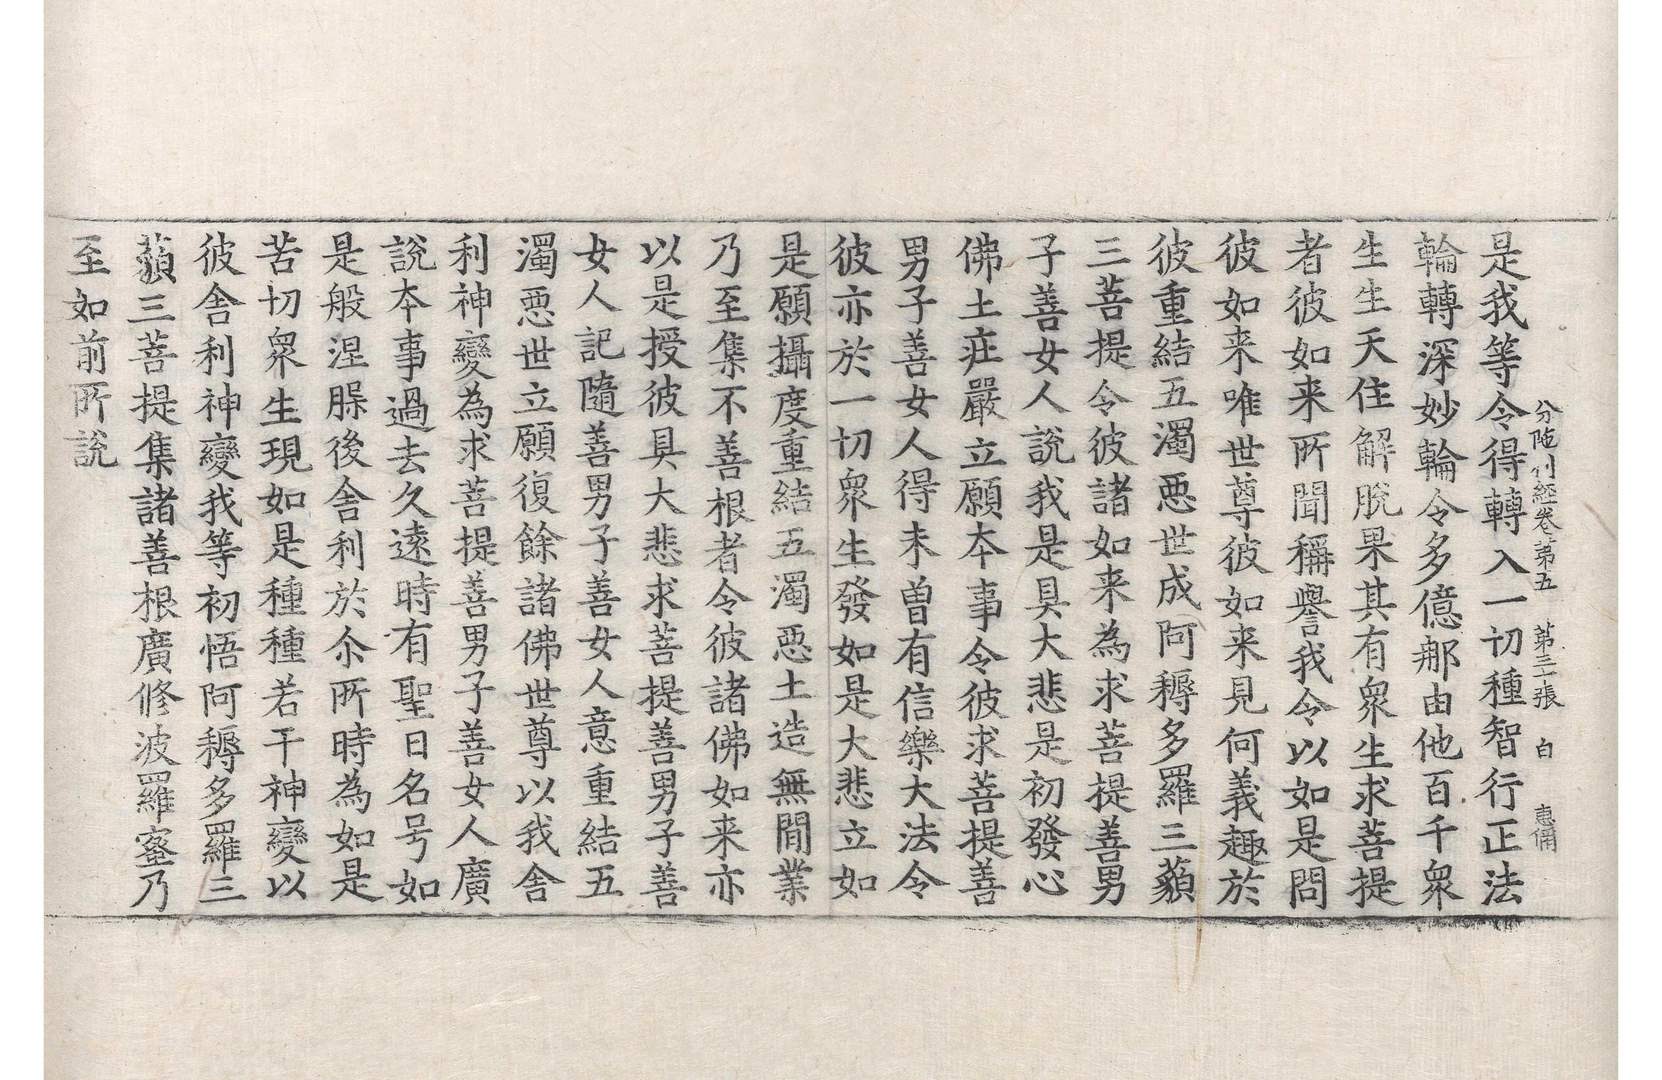 分陁利經卷第五 第三張 白 惠備
是我等令得轉入一切種智行正法
輪轉深妙輪令多億那由他百千衆
生生天住解脫果其有衆生求菩提
者彼如来所聞稱譽我令以如是問
彼如来唯世尊彼如来見何義趣於
彼重結五濁惡世成阿耨多羅三藐
三菩提令彼諸如来為求菩提善男
子善女人說我是具大悲是初發心
佛土莊嚴立願夲事令彼求菩提善
男子善女人得未曽有信樂大法令
彼亦於一切衆生發如是大悲立如
是願攝度重結五濁惡土造無間業
乃至集不善根者令彼諸佛如来亦
以是授彼具大悲求菩提善男子善
女人記隨善男子善女人意重結五
濁惡世立願復餘諸佛世尊以我舎
利神變為求菩提善男子善女人廣
說夲事過去久遠時有聖日名号如
是般涅槃後舎利於尒所時為如是
苦切衆生現如是種種若干神變以
彼舎利神變我等初悟阿耨多羅三
藐三菩提集諸善根廣修波羅蜜乃
至如前所說